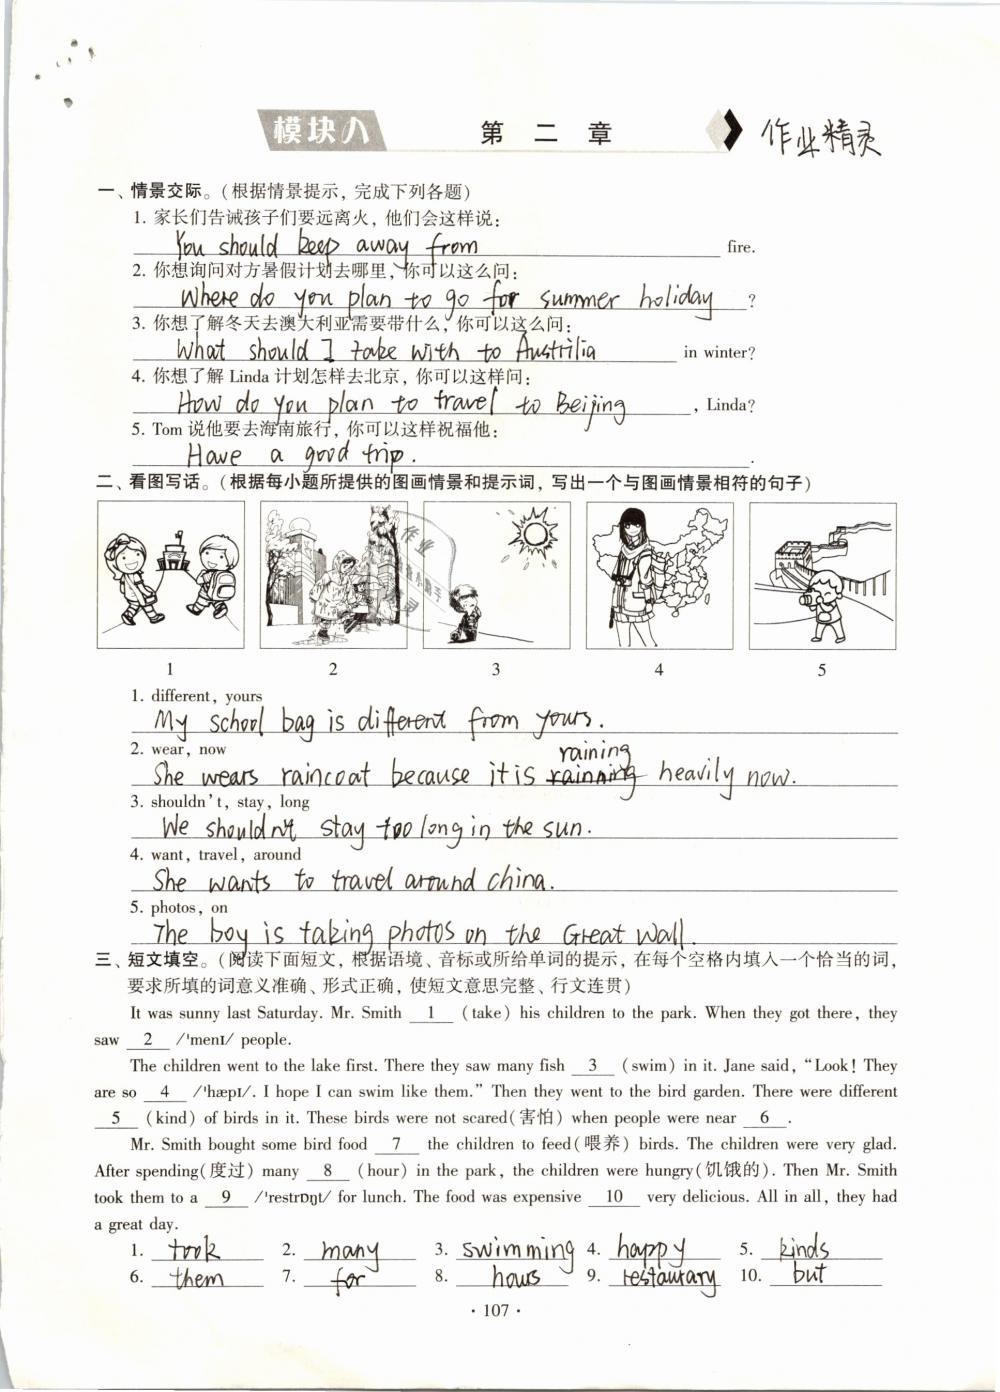 模块八 第二章 作业精灵
一、情景交际。(根据情景提示，完成下列各题)
1. 家长们告诫孩子们要远离火，他们会这样说：
You should keep away from fire.
2. 你想询问对方暑假计划去哪里，你可以这么问：
Where do you plan to go for summer holiday ?
3. 你想了解冬天去澳大利亚需要带什么，你可以这么问：
What should I take with to Austrilia in winter?
4. 你想了解 Linda 计划怎样去北京，你可以这样问：
How do you plan to travel to Beijing , Linda?
5. Tom 说他要去海南旅行，你可以这样祝福他：
Have a good trip. .
二、看图写话。(根据每小题所提供的图画情景和提示词，写出一个与图画情景相符的句子)
作业
1 2 3 4 5
1. different, yours
My school bag is different from yours.
2. wear, now
raining
She wears raincoat because it is rainning heavily now.
3. shouldn't, stay, long
We shouldn't stay too long in the sun.
4. want, travel, around
She wants to travel around china.
5. photos, on
The boy is taking photos on the Great Wall.
三、短文填空。(阅读下面短文，根据语境、音标或所给单词的提示，在每个空格内填入一个恰当的词，
要求所填的词意义准确、形式正确，使短文意思完整、行文连贯)
It was sunny last Saturday. Mr. Smith 1 (take) his children to the park. When they got there, they
saw 2 /'menɪ/ people.
The children went to the lake first. There they saw many fish 3 (swim) in it. Jane said, "Look! They
are so 4 /'hæpɪ/. I hope I can swim like them." Then they went to the bird garden. There were different
5 (kind) of birds in it. These birds were not scared(害怕) when people were near 6 .
Mr. Smith bought some bird food 7 the children to feed(喂养) birds. The children were very glad.
After spending(度过) many 8 (hour) in the park, the children were hungry(饥饿的). Then Mr. Smith
took them to a 9 /'restrɒŋt/ for lunch. The food was expensive 10 very delicious. All in all, they had
a great day.
1. took 2. many 3. swimming 4. happy 5. kinds
6. them 7. for 8. hours 9. restaurary 10. but
· 107 ·